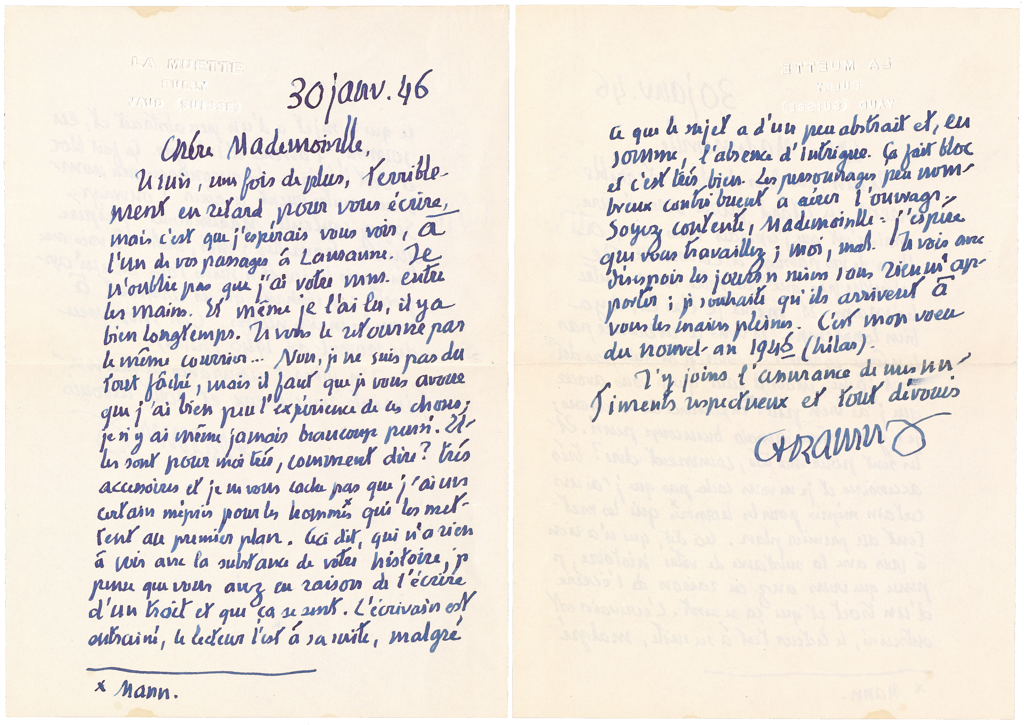 LA MUETTE
PULLY
VAUD (SUISSE)
30 janv. 46
Chère Mademoiselle,
Je suis, une fois de plus, terrible-
ment en retard pour vous écrire,
mais c'est que j'espérais vous voir, à
l'un de vos passages à Lausanne. Je
n'oublie pas que j'ai votre mns. entre
les mains. Et même je l'ai lu, il y a
bien longtemps. Je vous le retourne par
le même courrier... Non, je ne suis pas du
tout fâché, mais il faut que je vous avoue
que j'ai bien peu l'expérience de ces choses;
je n'y ai même jamais beaucoup pensé. El-
les sont pour moi très, comment dire? très
accessoires et je ne vous cache pas que j'ai un
certain mépris pour les hommes* qui les met-
tent au premier plan. Ceci dit, qui n'a rien
à voir avec la substance de votre histoire, je
pense que vous avez eu raison de l'écrire
d'un trait et que ça se sent. L'écrivain est
entrainé, le lecteur l'est à sa suite, malgré
* Mann.
ce que le sujet a d'un peu abstrait et, en
somme, l'absence d'intrigue. Ça fait bloc
et c'est très bien. Les personnages peu nom-
breux contribuent à aérer l'ouvrage.
Soyez contente, Mademoiselle. J'espère
que vous travaillez; moi, mal. Je vois avec
désespoir les jours se suivre sans rien m'ap-
porter; je souhaite qu'ils arrivent à
vous les mains pleines. C'est mon voeu
du nouvel-an 1946 (hélas).
J'y joins l'assurance de mes sen-
timents respectueux et tout dévoués
CFRamuz